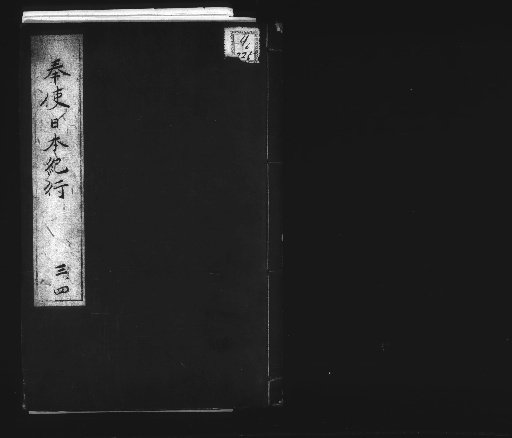 奉使日本紀行
三、四